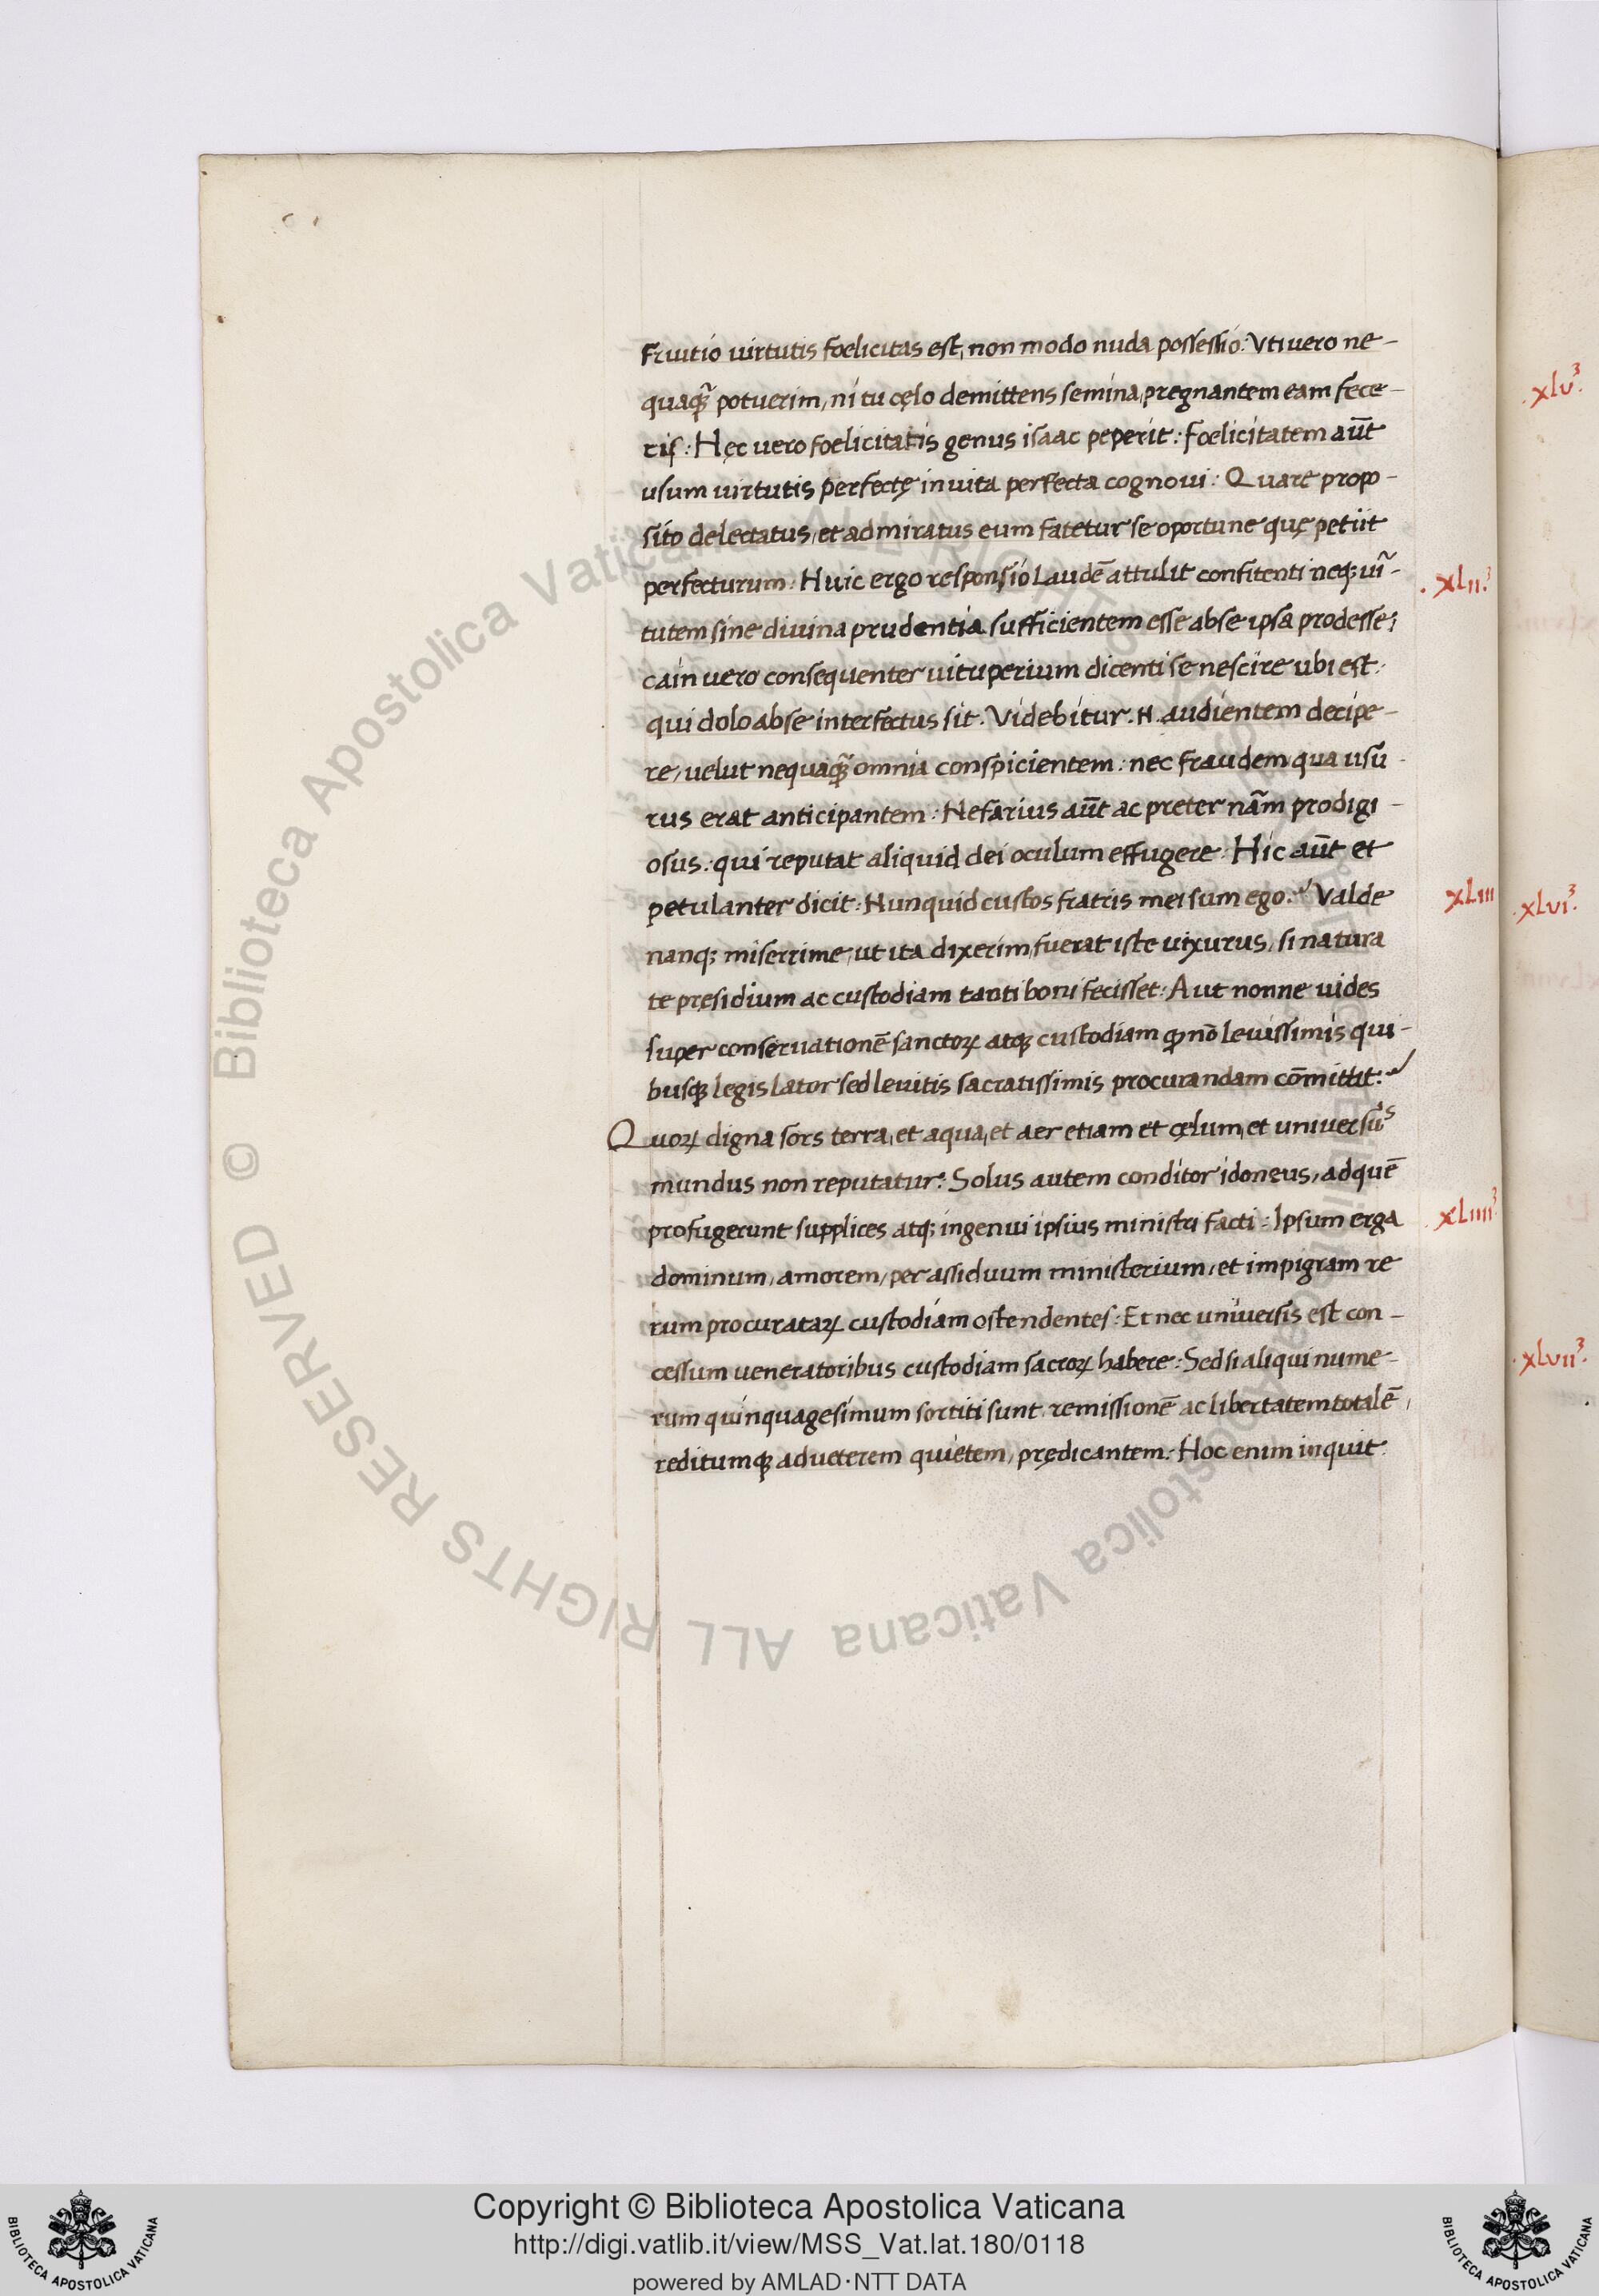 Fruitio uirtutis foelicitas est, non modo nuda possessio: Vti uero ne-
quaqȝ̃ potuerim, ni tu cęlo demittens semina, pregnantem eam fece-
ris: Hęc uero foelicitatis genus isaac peperit: Foelicitatem aūt
usum uirtutis perfectę in uita perfecta cognoui: Quare propo-
sito delectatus, et admiratus eum fatetur se oportune quę petiit
perfecturum: Huic ergo responsio Laudē attulit confitenti neqȝ uir̃-
tutem sine diuina prudentia sufficientem esse abse ipsa prodesse:
cain uero consequenter uituperium dicenti se nescire ubi est:
qui dolo abse interfectus sit. Videbitur .N. audientem decipe-
re, uelut nequaqȝ̃ omnia conspicientem: nec fraudem qua usu-
rus erat anticipantem: Nefarius aūt ac preter nãm prodigi-
osus: qui reputat aliquid dei oculum effugere: Hic aūt et
petulanter dicit: Nunquid custos fratris mei sum ego: Valde
nanqȝ miserrime, ut ita dixerim, fuerat iste uixurus, si natura
te pręsidium ac custodiam tanti boni fecisset: Aut nonne uides
super conseruationē sanctoꝝ atqȝ custodiam ꝙ nō leuissimis qui-
busqȝ legislator sed leuitis sacratissimis procurandam cōmittit:
Quoꝝ digna sors terra, et aqua, et aer etiam et cęlum, et uniuersus
mundus non reputatur: Solus autem conditor idoneus, ad quē
profugerunt supplices atqȝ ingenui ipsius ministri facti: Ipsum erga
dominum, amorem, per assiduum ministerium, et impigram re
rum procurataꝝ custodiam ostendentes: Et nec uniuersis est con-
cessum ueneratoribus custodiam sacroꝝ habere: Sed si aliqui nume-
rum quinquagesimum sortiti sunt, remissionē ac libertatem totalē,
reditumqȝ ad ueterem quietem, prędicantem: Hoc enim inquit:
.xLii.
xLiii
xLiiii
.xLv.
.xLvi.
.xLvii.
© Biblioteca Apostolica Vaticana ALL RIGHTS RESERVED
Copyright © Biblioteca Apostolica Vaticana
http://digi.vatlib.it/view/MSS_Vat.lat.180/0118
powered by AMLAD·NTT DATA
BIBLIOTECA APOSTOLICA VATICANA
BIBLIOTECA APOSTOLICA VATICANA